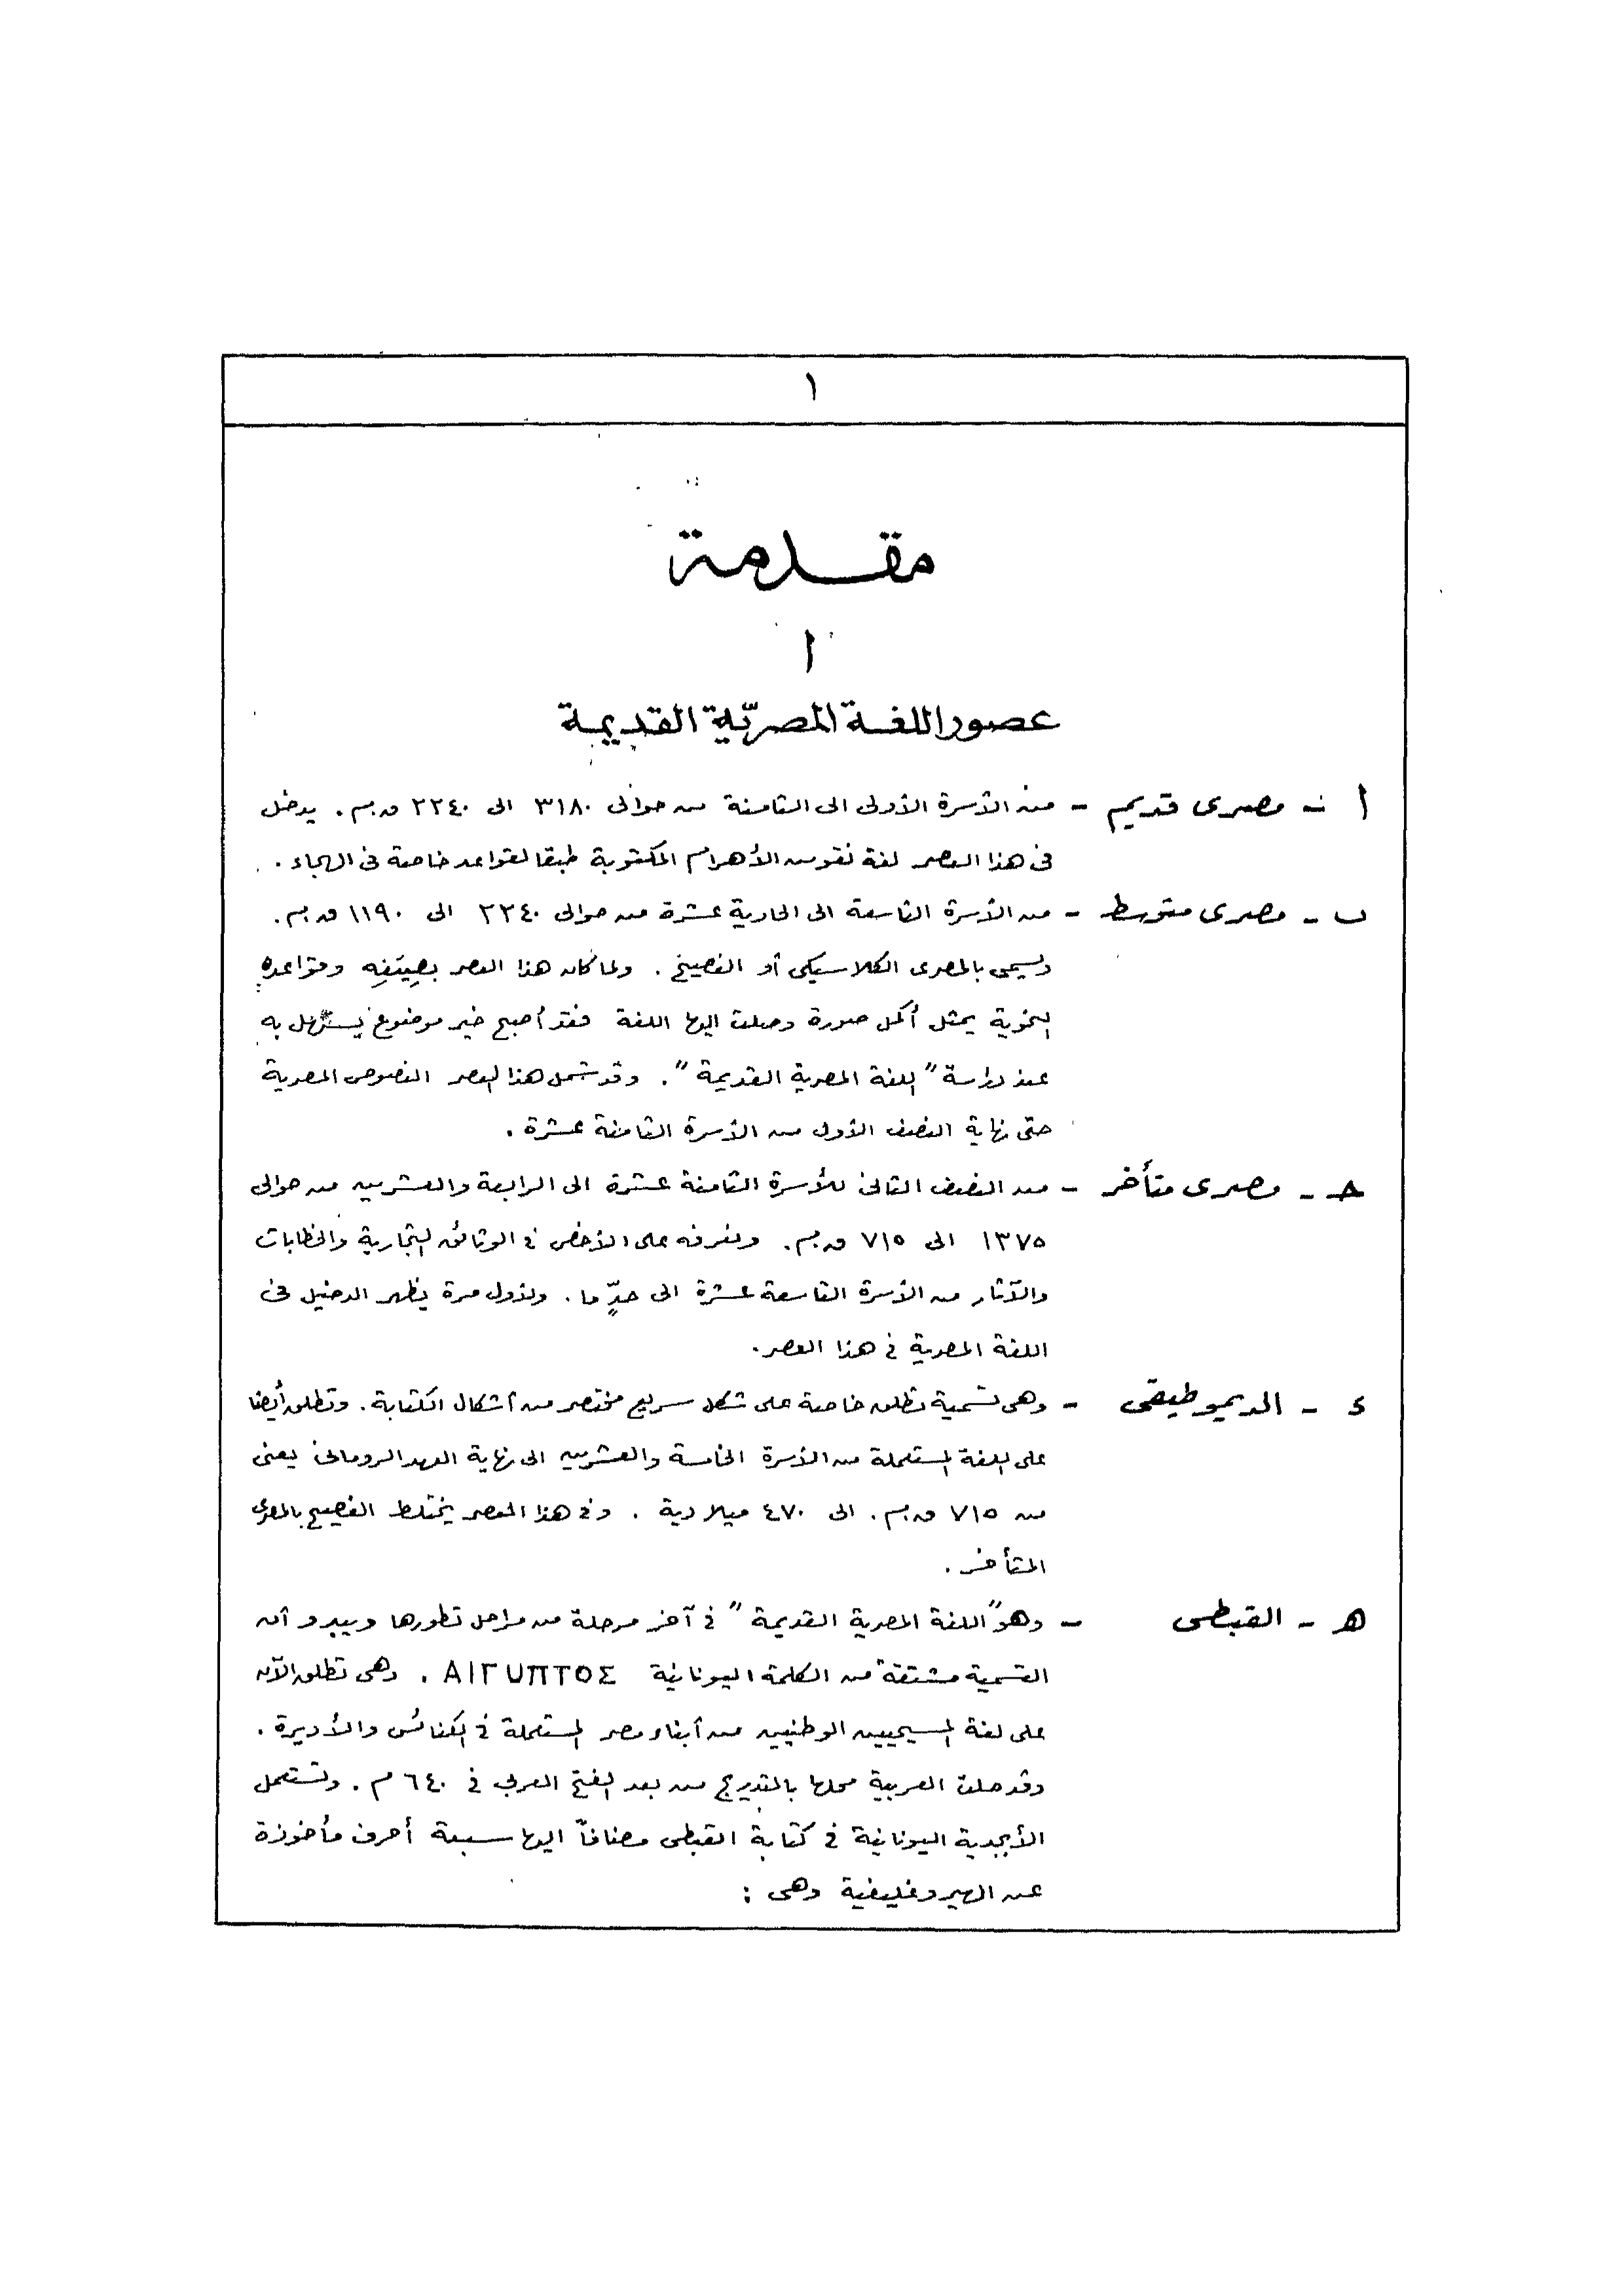 ١
مقدمة
١
عصور اللغة المصريّة القديمة
ا - مصرى قديم - من الأسرة الأولى الى الثامنة من حوالى ٣١٨٠ الى ٢٢٤٠ ق.م. يدخل
فى هذا العصر لغة نقوش الأهرام المكتوبة طبقا لقواعد خاصة فى الهجاء.
ب - مصرى متوسط - من الأسرة التاسعة الى الحادية عشرة من حوالى ٢٢٤٠ الى ١١٩٠ ق.م.
ويسمى بالمصرى الكلاسيكى أو الفصيح. ولما كان هذا العصر بصيغه وقواعده
النحوية يمثل أكمل صورة وصلت اليها اللغة فقد أصبح خير موضوع يستهل به
عند دراسة "اللغة المصرية القديمة". وقد شمل هذا العصر النصوص المصرية
حتى نهاية النصف الأول من الأسرة الثامنة عشرة.
حـ - مصرى متأخر - من النصف الثانى للأسرة الثامنة عشرة الى الرابعة والعشرين من حوالى
١٣٧٥ الى ٧١٥ ق.م. ونعرفه على الأخص فى الوثائق التجارية والخطابات
والآثار من الأسرة التاسعة عشرة الى حدٍّ ما. ولأول مرة يظهر الدخيل فى
اللغة المصرية فى هذا العصر.
د - الديموطيقى - وهى تسمية تطلق خاصة على شكل سريع مختصر من أشكال الكتابة. وتطلق أيضا
على اللغة المستعملة من الأسرة الخامسة والعشرين الى نهاية العهد الرومانى يعنى
من ٧١٥ ق.م. الى ٤٧٠ ميلادية. وفى هذا العصر يختلط الفصيح بالمصرى
المتأخر.
هـ - القبطى - وهو "اللغة المصرية القديمة" فى آخر مرحلة من مراحل تطورها ويبدو أن
التسمية مشتقة من الكلمة اليونانية ΑΙΓΥΠΤΟΣ. وهى تطلق الآن
على لغة المسيحيين الوطنيين من أبناء مصر المستعملة فى الكنائس والأديرة.
وقد حلت العربية محلها بالتدريج من بعد الفتح العربى فى ٦٤٠ م. وتستعمل
الأبجدية اليونانية فى كتابة القبطى مضافاً اليها سبعة أحرف مأخوذة
عن الهيروغليفية وهى :